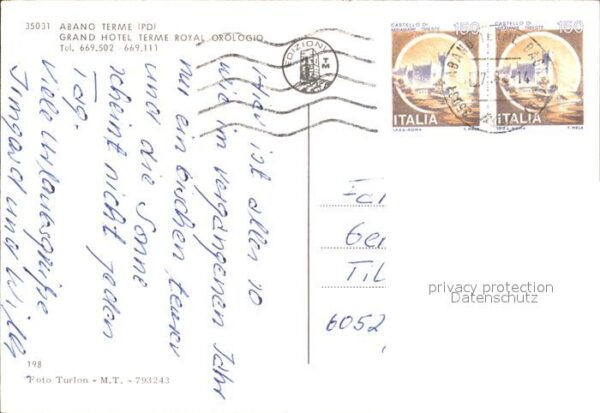 35031 ABANO TERME (PD)
GRAND HOTEL TERME ROYAL OROLOGIO
Tel. 669.502 - 669.111
EDIZIONI
TM
CASTELLO DI
MIRAMARE TRIESTE
150
ITALIA
I.P.Z.S. ROMA
F. MELE
CASTELLO DI
MIRAMARE TRIESTE
150
ITALIA
I.P.Z.S. ROMA
F. MELE
ABANO TERME
Hier ist alles so
wie im vergangenen Jahr
nur ein bischen teurer
und die Sonne
scheint nicht jeden
Tag.
Viele Urlaubsgrüße
Irmgard und Willi
Fa
Ger
Til
6052
privacy protection
Datenschutz
198
Foto Turlon - M.T. - 793243